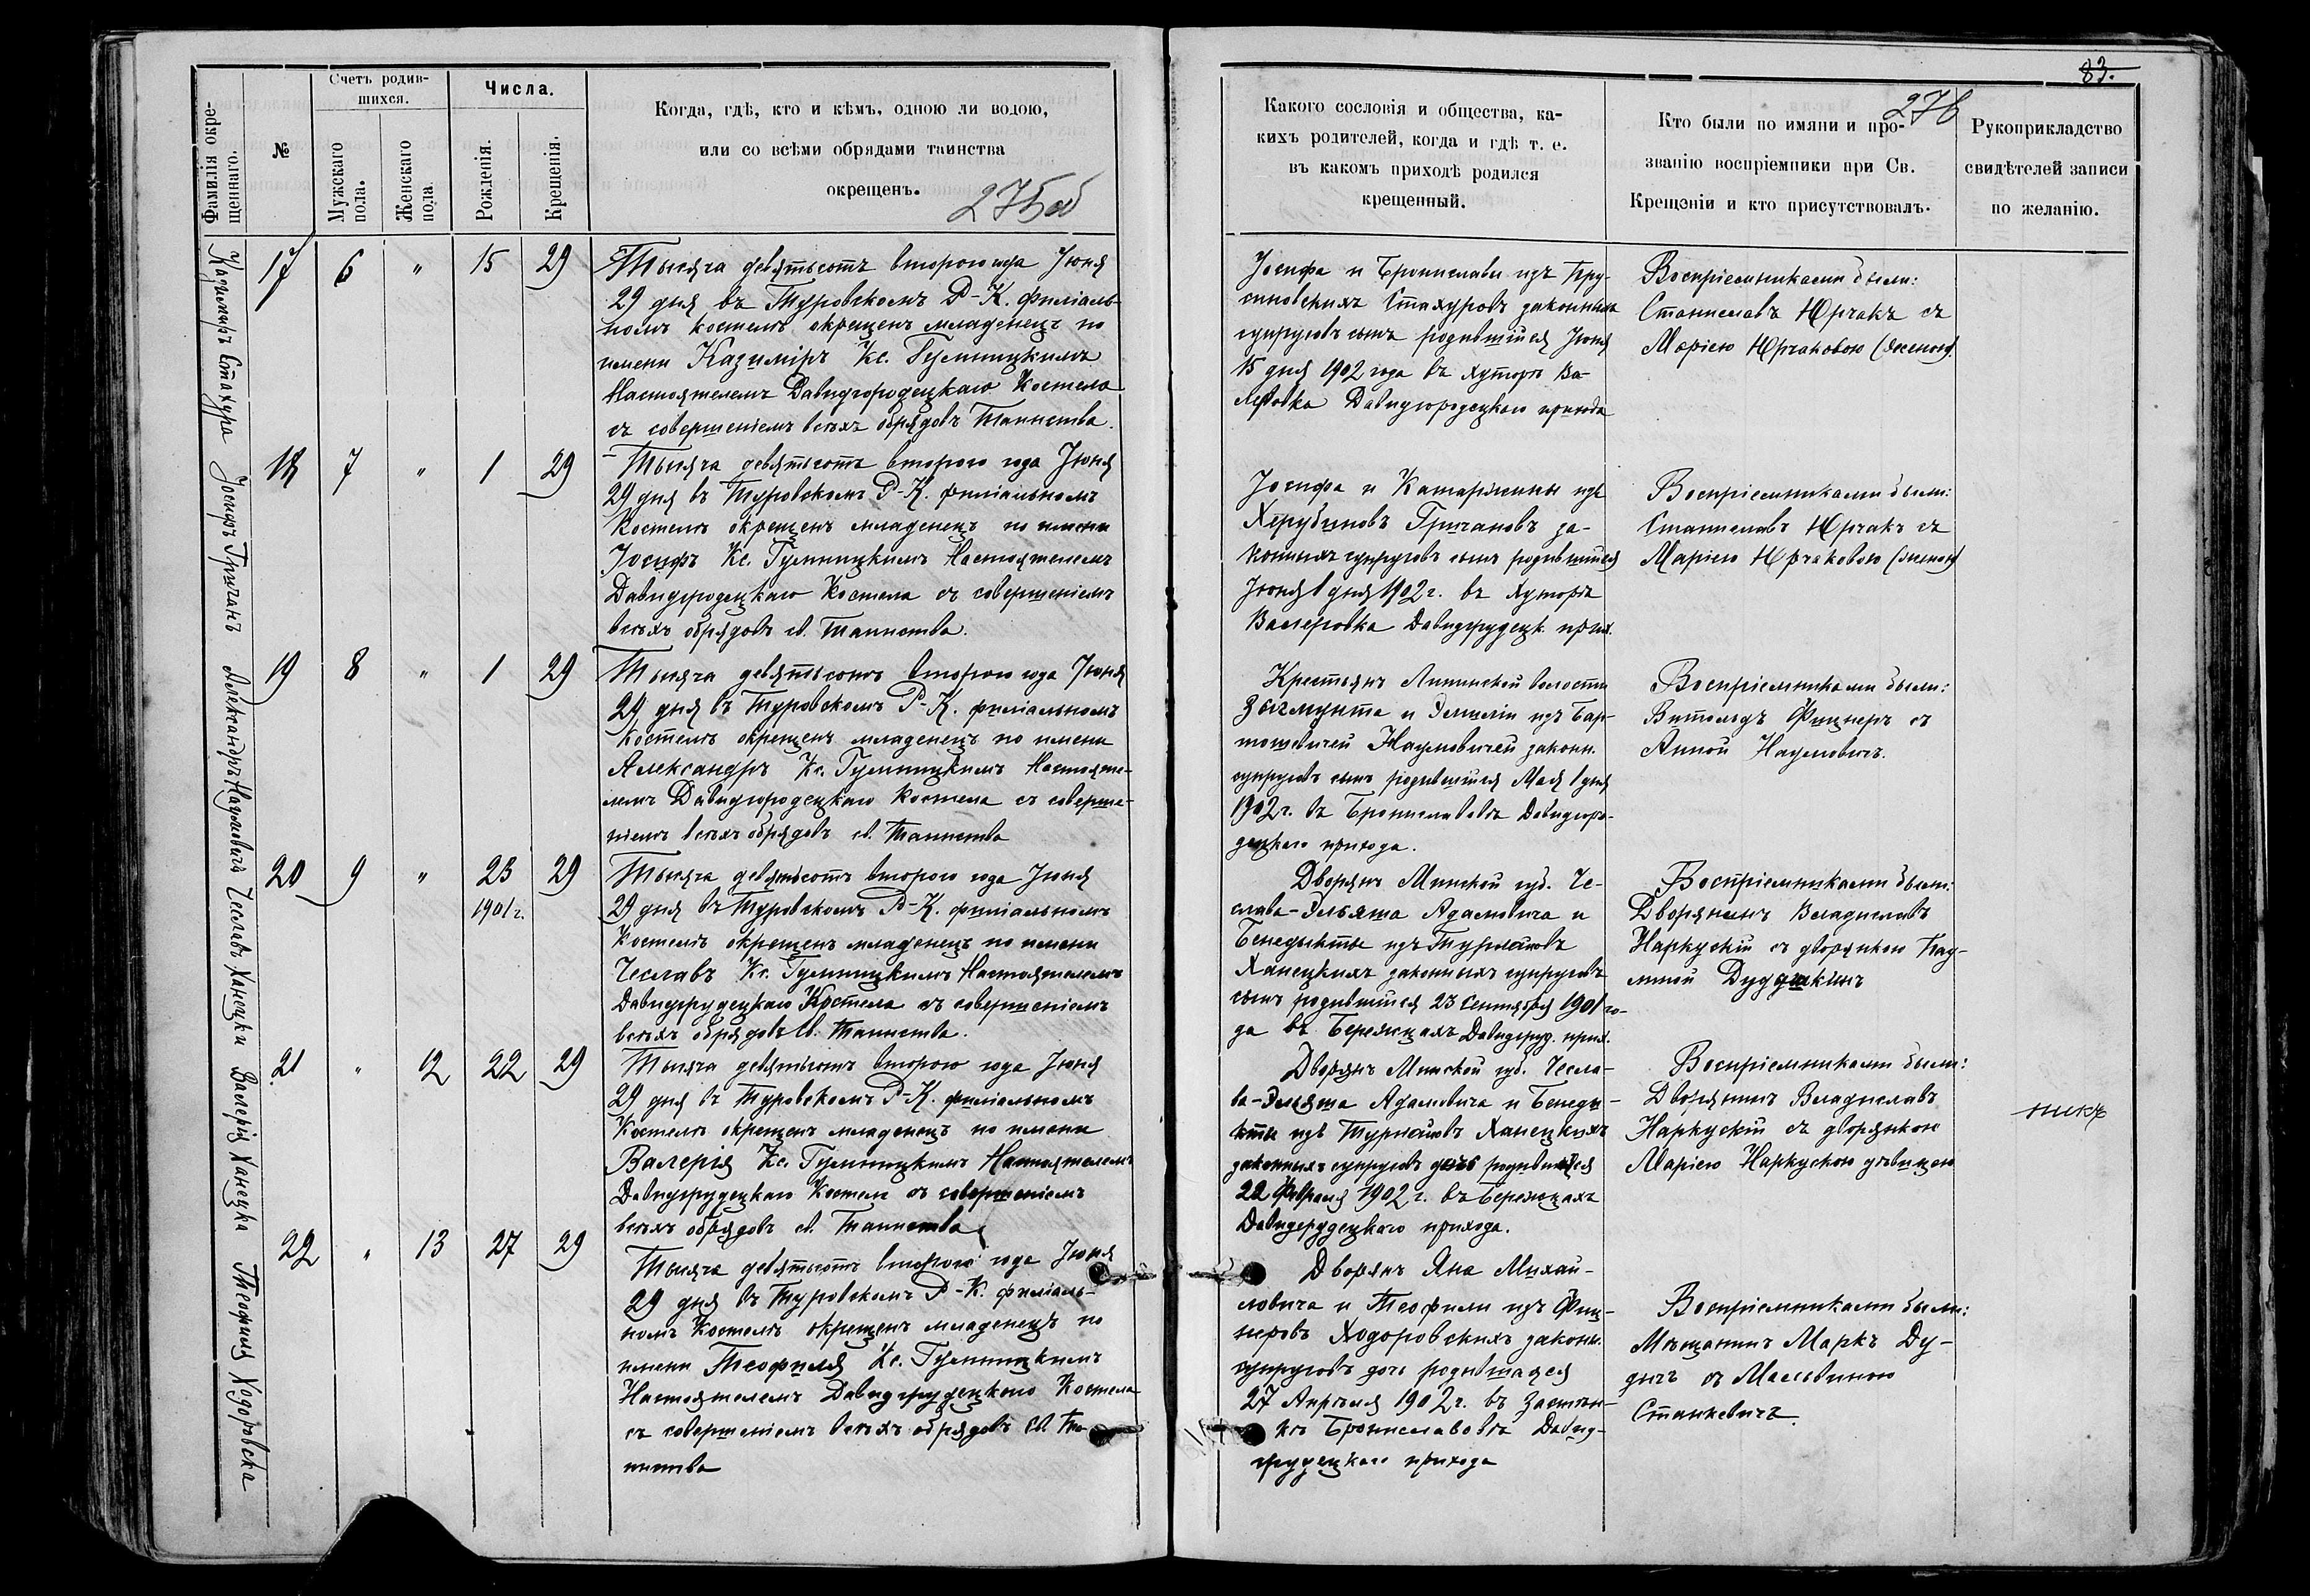 Фамилія окре-
щеннаго.
№
Счетъ родив-
шихся.
Мужскаго
пола.
Женскаго
пола.
Числа.
Рожденія.
Крещенія.
Когда, гдѣ, кто и кѣмъ, одною ли водою,
или со всѣми обрядами таинства
окрещенъ.
275об
Казиміръ Стахура
17 6 " 15 29
Тысяча девятьсотъ второго года Іюня
29 дня въ Туровскомъ Р-К. филіаль-
номъ костелѣ окрещенъ младенецъ по
имени Казиміръ Кс.
Настоятелемъ Давидгородецкаго Костела
съ совершеніемъ всѣхъ обрядовъ Таинства.
Іосифъ Гричанъ
18 7 " 1 29
Тысяча девятьсотъ второго года Іюня
29 дня въ Туровскомъ Р-К. филіальномъ
Костелѣ окрещенъ младенецъ по имени
Іосифъ Кс. Настоятелемъ
Давидгродецкаго Костела съ совершеніемъ
всѣхъ обрядовъ св. Таинства.
Александръ Наумовичъ
19 8 " 1 29
Тысяча девятьсотъ второго года Іюня
29 дня въ Туровскомъ Р-К. филіальномъ
Костелѣ окрещенъ младенецъ по имени
Александръ Кс. Настояте-
лемъ Давидгородецкаго Костела съ соверше-
ніемъ всѣхъ обрядовъ св. Таинства
Чеславъ Ханецки
20 9 " 23 29
1901 г.
Тысяча девятьсотъ второго года Іюня
29 дня въ Туровскомъ Р-К. филіальномъ
Костелѣ окрещенъ младенецъ по имени
Чеславъ Кс. Настоятелемъ
Давидгрудецкаго Костела съ совершеніемъ
всѣхъ обрядовъ Св. Таинства.
Валерія Ханецка
21 " 12 22 29
Тысяча девятьсотъ второго года Іюня
29 дня въ Туровскомъ Р-К. филіальномъ
Костелѣ окрещенъ младенецъ по имени
Валерія Кс. Настоятелемъ
Давидгрудецкаго Костела съ совершеніемъ
всѣхъ обрядовъ св. Таинства
Теофиля Ходоровска
22 " 13 27 29
Тысяча девятьсотъ второго года Іюня
29 дня въ Туровскомъ Р-К. филіаль-
номъ Костелѣ окрещенъ младенецъ по
имени Теофиля Кс.
Настоятелемъ Давидгрудецкаго Костела
съ совершеніемъ всѣхъ обрядовъ св. Та-
инства
83.
276
Какого сословія и общества, ка-
кихъ родителей, когда и гдѣ т. е.
въ какомъ приходѣ родился
крещенный.
Кто были по имяни и про-
званію воспріемники при Св.
Крещеніи и кто присутствовалъ.
Рукоприкладство
свидѣтелей записи
по желанію.
Іосифа и Брониславы изъ Пру-
синовскихъ Стахуровъ законныхъ
супруговъ сынъ родившійся Іюня
15 дня 1902 года въ хуторѣ Ва-
леровка Давидгородецкаго прихода
Воспріемниками были:
Станиславъ Юрчакъ съ
Маріею Юрчаковою
Іосифа и Катаржины изъ
Херубиновъ Гричановъ за-
конныхъ супруговъ сынъ родившійся
Іюня 1 дня 1902 г. въ хуторѣ
Валеровка Давидгрудецк. прих.
Воспріемниками были:
Станиславъ Юрчакъ съ
Маріею Юрчаковою
Крестьянъ волости
Зыгмунта и Эмиліи изъ Бар-
тошевичей Наумовичей законн.
супруговъ сынъ родившійся Мая 1 дня
1902 г. въ Брониславовѣ Давидгоро-
децкаго прихода.
Воспріемниками были:
Витольдъ Фицнеръ съ
Анной Наумовичъ.
Дворянъ Минской губ. Че-
слава-Эльяша Адамовича и
Бенедыкты изъ
Ханецкихъ законныхъ супруговъ
сынъ родившійся 23 Сентября 1901 го-
да въ Бережцахъ Давидгруд. прих.
Воспріемниками были:
Дворянинъ Владиславъ
Наркускій съ дворянкою Пау-
линой
Дворянъ Минской губ. Чесла-
ва-Эльяша Адамовича и Бенеды-
кты изъ Ханецкихъ
законныхъ супруговъ дочь родившаяся
22 Февраля 1902 г. въ Бережцахъ
Давидгрудецкаго прихода.
Воспріемниками были:
Дворянинъ Владиславъ
Наркускій съ дворянкою
Маріею Наркускою дѣвицею
Дворянъ Яна Михай-
ловича и Теофили изъ Фиц-
неровъ Ходоровскихъ законн.
супруговъ дочь родившаяся
27 Апрѣля 1902 г. въ застѣн-
кѣ Брониславовѣ Давид-
грудецкаго прихода
Воспріемниками были:
Мѣщанинъ Маркъ Ду-
дичъ съ Мальвиною
Станкевичъ.